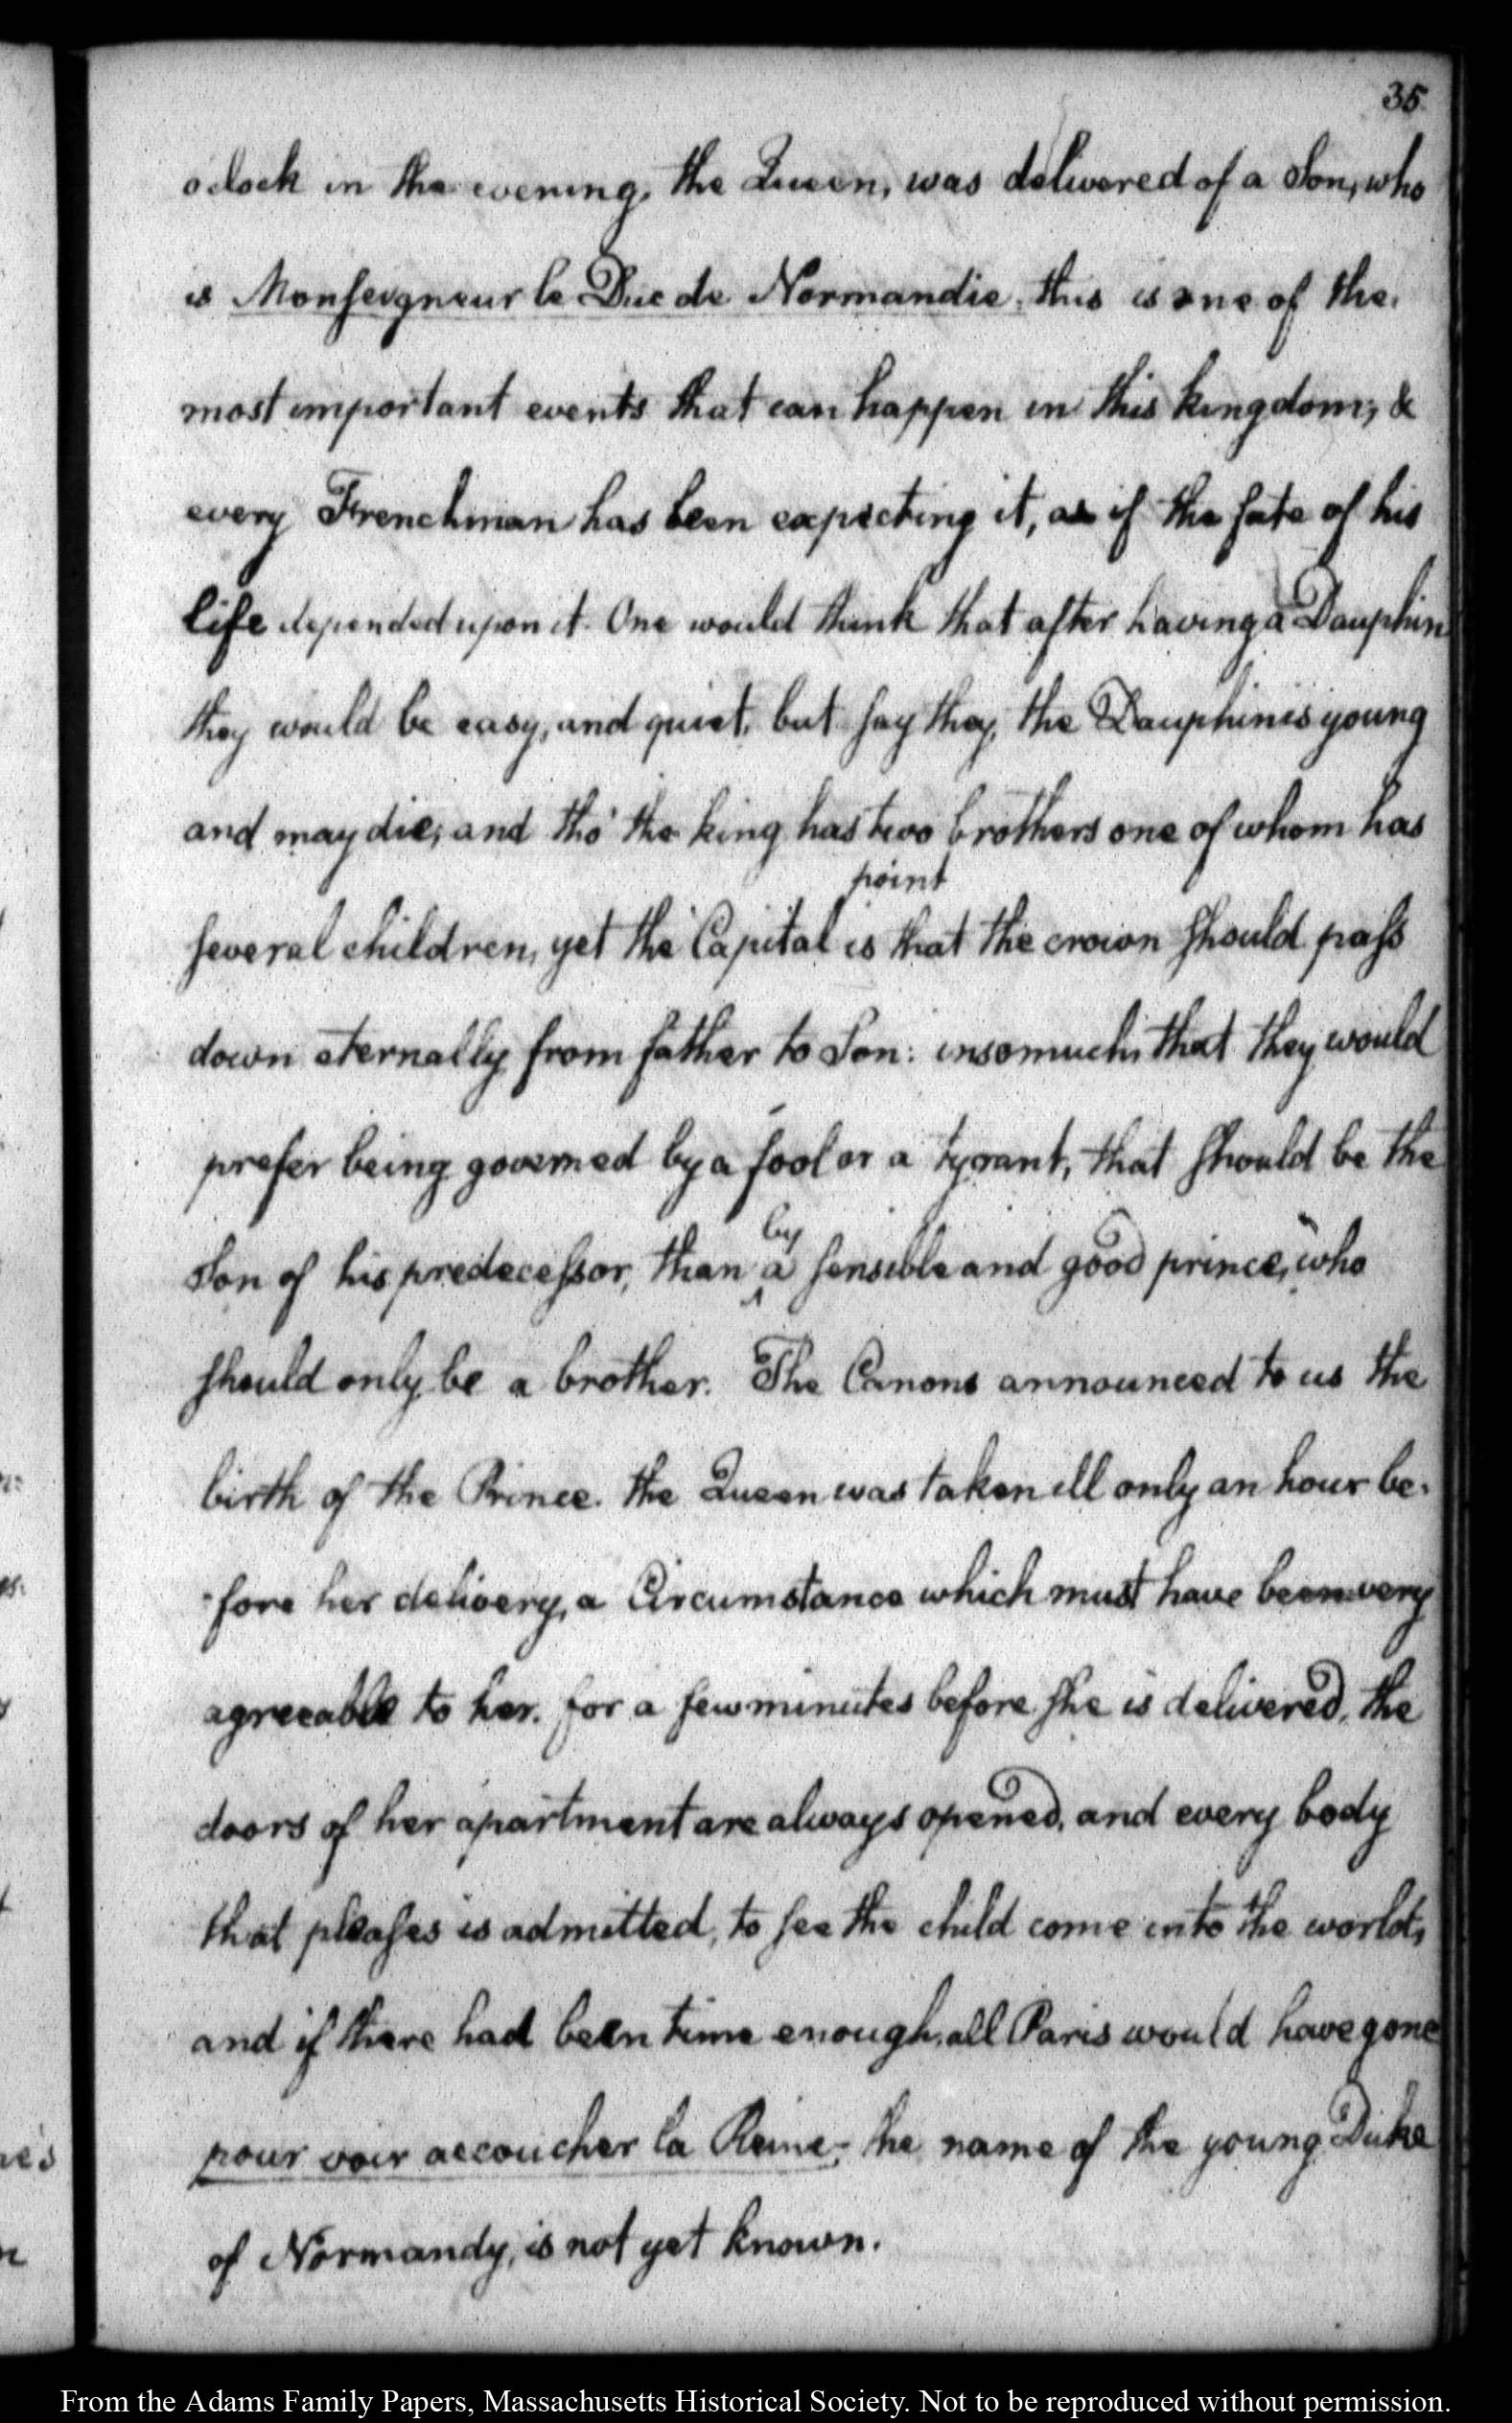 35
oclock in the evening, the Queen, was delivered of a Son, who
is Monseigneur le Duc de Normandie. this is one of the
most important events that can happen in this kingdom; &
every Frenchman has been expecting it, as if the fate of his
life depended upon it. One would think that after having a Dauphin
they would be easy, and quiet, but say they, the Dauphin is young
and may die; and tho' the king has two brothers one of whom has
point
several children, yet the Capital is that the crown should pass
down eternally from father to Son: insomuch that they would
prefer being governed by a fool or a tyrant, that should be the
by
Son of his predecessor, than ^ a sensible and good prince, who
should only be a brother. The Canons announced to us the
birth of the Prince. the Queen was taken ill only an hour be-
-fore her delivery, a Circumstance which must have been very
agreeable to her. for a few minutes before she is delivered, the
doors of her apartment are always opened, and every body
that pleases is admitted, to see the child come into the world,
and if there had been time enough, all Paris would have gone
pour voir accoucher la Reine. the name of the young Duke
of Normandy, is not yet known.
From the Adams Family Papers, Massachusetts Historical Society. Not to be reproduced without permission.